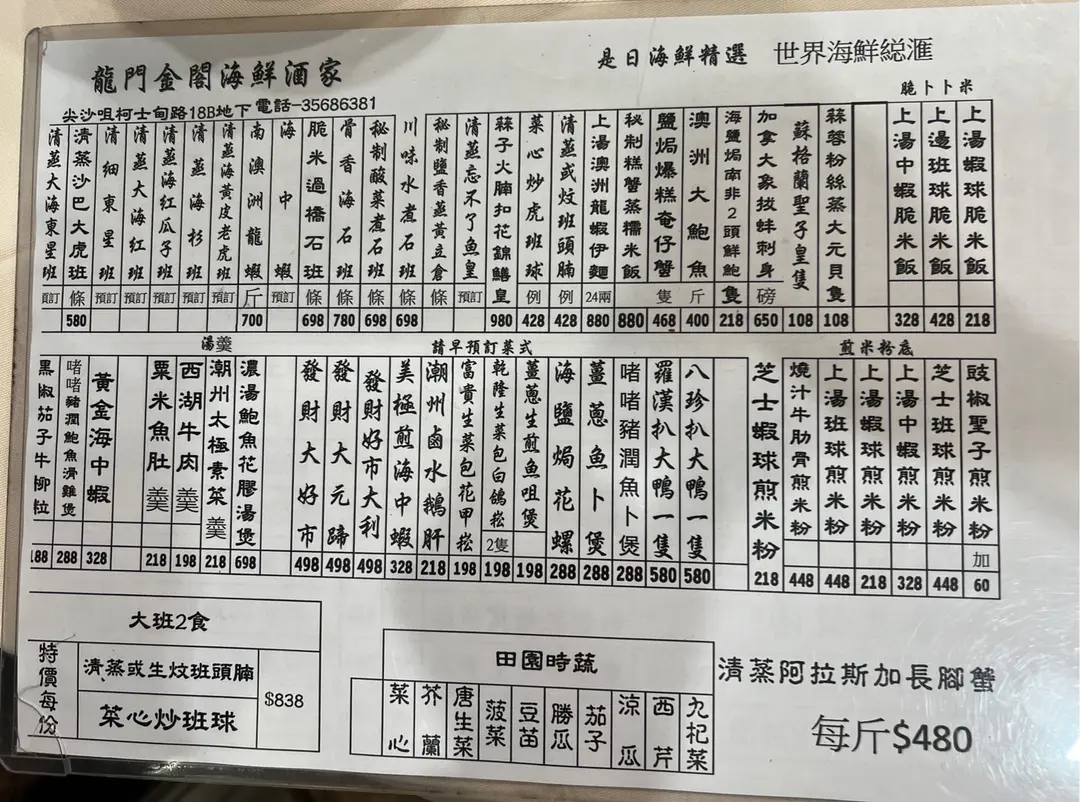 龍門金閣海鮮酒家
尖沙咀柯士甸路18B地下 電話-35686381
是日海鮮精選 世界海鮮総滙
脆卜卜米
上湯蝦球脆米飯 218
上邊班球脆米飯 428
上湯中蝦脆米飯 328
蒜蓉粉絲蒸大元貝 隻 108
蘇格蘭聖子皇 隻 108
加拿大象拔蚌刺身 磅 650
海鹽焗南非2頭鮮鮑 隻 218
澳洲大鮑魚 斤 400
鹽焗爆糕奄仔蟹 隻 468
秘制糕蟹蒸糯米飯 880
上湯澳洲龍蝦伊麵 24兩 880
清蒸或炆班頭腩 例 428
菜心炒虎班球 例 428
蒜子火腩扣花錦鱔皇 980
清蒸忘不了魚皇 預訂
秘制鹽香蒸黃立倉 條
川味水煮石班 條 698
秘制酸菜煮石班 條 698
骨香海石班 條 780
脆米過橋石班 條 698
海中蝦 預訂
南澳洲龍蝦 斤 700
清蒸海黃皮老虎班 預訂
清蒸海杉班 預訂
清蒸海紅瓜子班 預訂
清蒸大海紅班 預訂
清細東星班 預訂
清蒸沙巴大虎班 條 580
清蒸大海東星班 預訂
煎米粉底
豉椒聖子煎米粉 加 60
芝士班球煎米粉 448
上湯中蝦煎米粉 328
上湯蝦球煎米粉 218
上湯班球煎米粉 448
燒汁牛肋骨煎米粉 448
芝士蝦球煎米粉 218
請早預訂菜式
八珍扒大鴨一隻 580
羅漢扒大鴨一隻 580
啫啫豬潤魚卜煲 288
薑蔥魚卜煲 288
海鹽焗花螺 288
薑蔥生煎魚咀煲 198
乾隆生菜包白鴿崧 2隻 198
富貴生菜包花甲崧 198
潮州鹵水鵝肝 218
美極煎海中蝦 328
發財好市大利 498
發財大元蹄 498
發財大好市 498
湯羹
濃湯鮑魚花膠湯煲 698
潮州太極素菜羹 218
西湖牛肉羹 198
粟米魚肚羹 218
黃金海中蝦 328
啫啫豬潤鮑魚滑雞煲 288
黑椒茄子牛柳粒 188
大班2食
特價每份
清蒸或生炆班頭腩
菜心炒班球
$838
田園時蔬
九杞菜
西芹
涼瓜
茄子
勝瓜
豆苗
菠菜
唐生菜
芥蘭
菜心
清蒸阿拉斯加長腳蟹
每斤$480